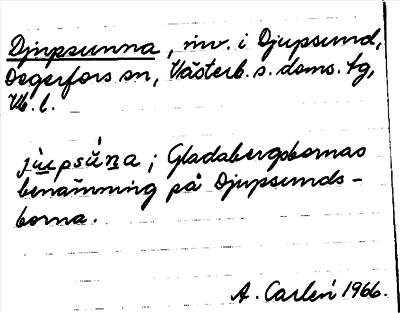 Djupsunna, inv. i Djupsund,
Degerfors sn, Västerb. s. doms. tg,
Vb. l.
jùpsúna; Gladabergsbornas
benämning på Djupsunds-
borna.
A. Carlén 1966.